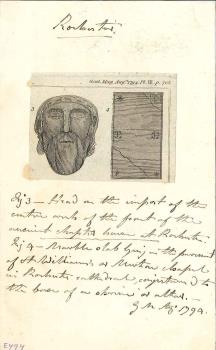 Rochester.
Gent. Mag. Augt. 1794. Pl. III. p. 
3
4
Fig 3 — Head on the impost of the
centre arch of the front of the
ancient chapter house at Rochester.
Fig 4 — Marble slab lying in the pavement
of St William's or Merton chapel
in Rochester cathedral, conjectured to
the cover of a shrine or altar.
G M Ag. 1794.
E474